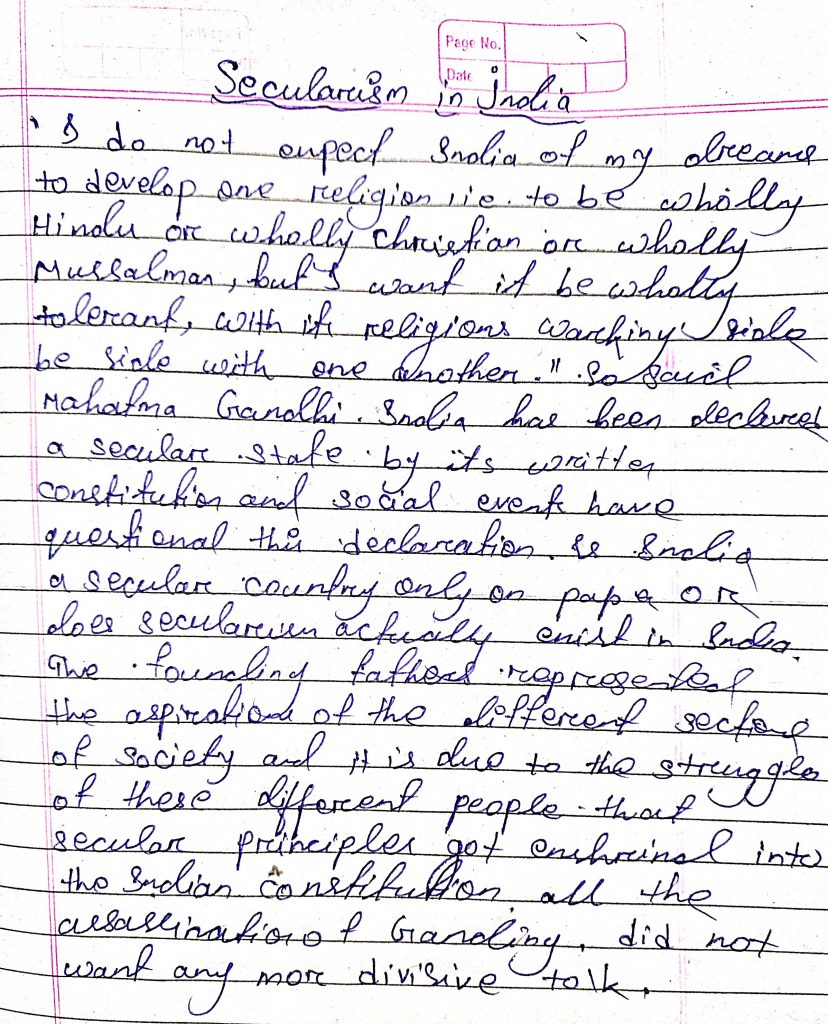 Page No.
Date
Secularism in India
" I do not expect India of my dreams
to develop one religion, i.e. to be wholly
Hindu or wholly Christian or wholly
Mussalman, but I want it be wholly
tolerant, with its religions working side
be side with one another." So said
Mahatma Gandhi. India has been declared
a secular state by its written
constitution and social events have
questional this declaration. Is India
a secular country only on pap a or
does secularism actually exist in India.
The founding fathers represented
the aspirations of the different sections
of society and it is due to the struggles
of these different people that
secular principles got enshrined into
the Indian Constitution all the
assassination of Gandhiji, did not
want any more divisive talk.